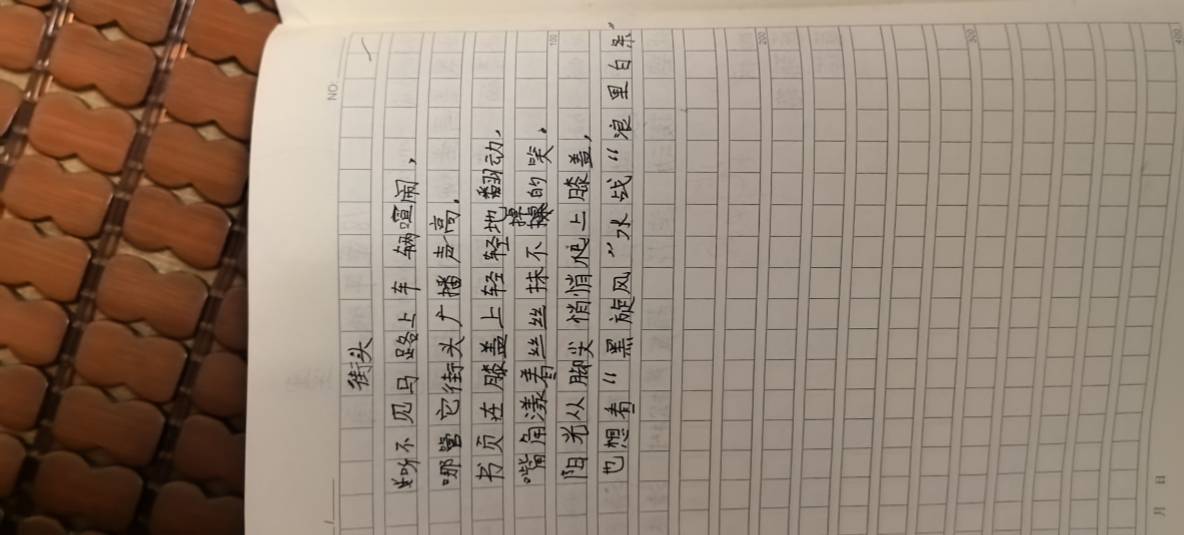 NO.
街头
听不见马路上车辆喧闹，
哪管它街头广播声高，
书页在膝盖上轻轻地翻动，
嘴角漾着丝丝抹不掉的笑。
阳光从脚尖悄悄爬上膝盖，
也想看“黑旋风”水战“浪里白条”
100
200
300
400
月 日